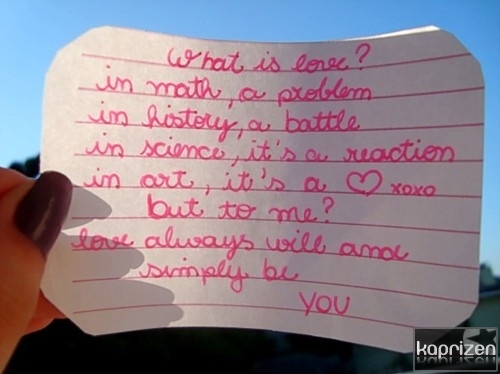 What is love?
in math, a problem
in history, a battle
in science, it's a reaction
in art, it's a ♡ xoxo
but to me?
love always will and
simply be
YOU
kaprizen